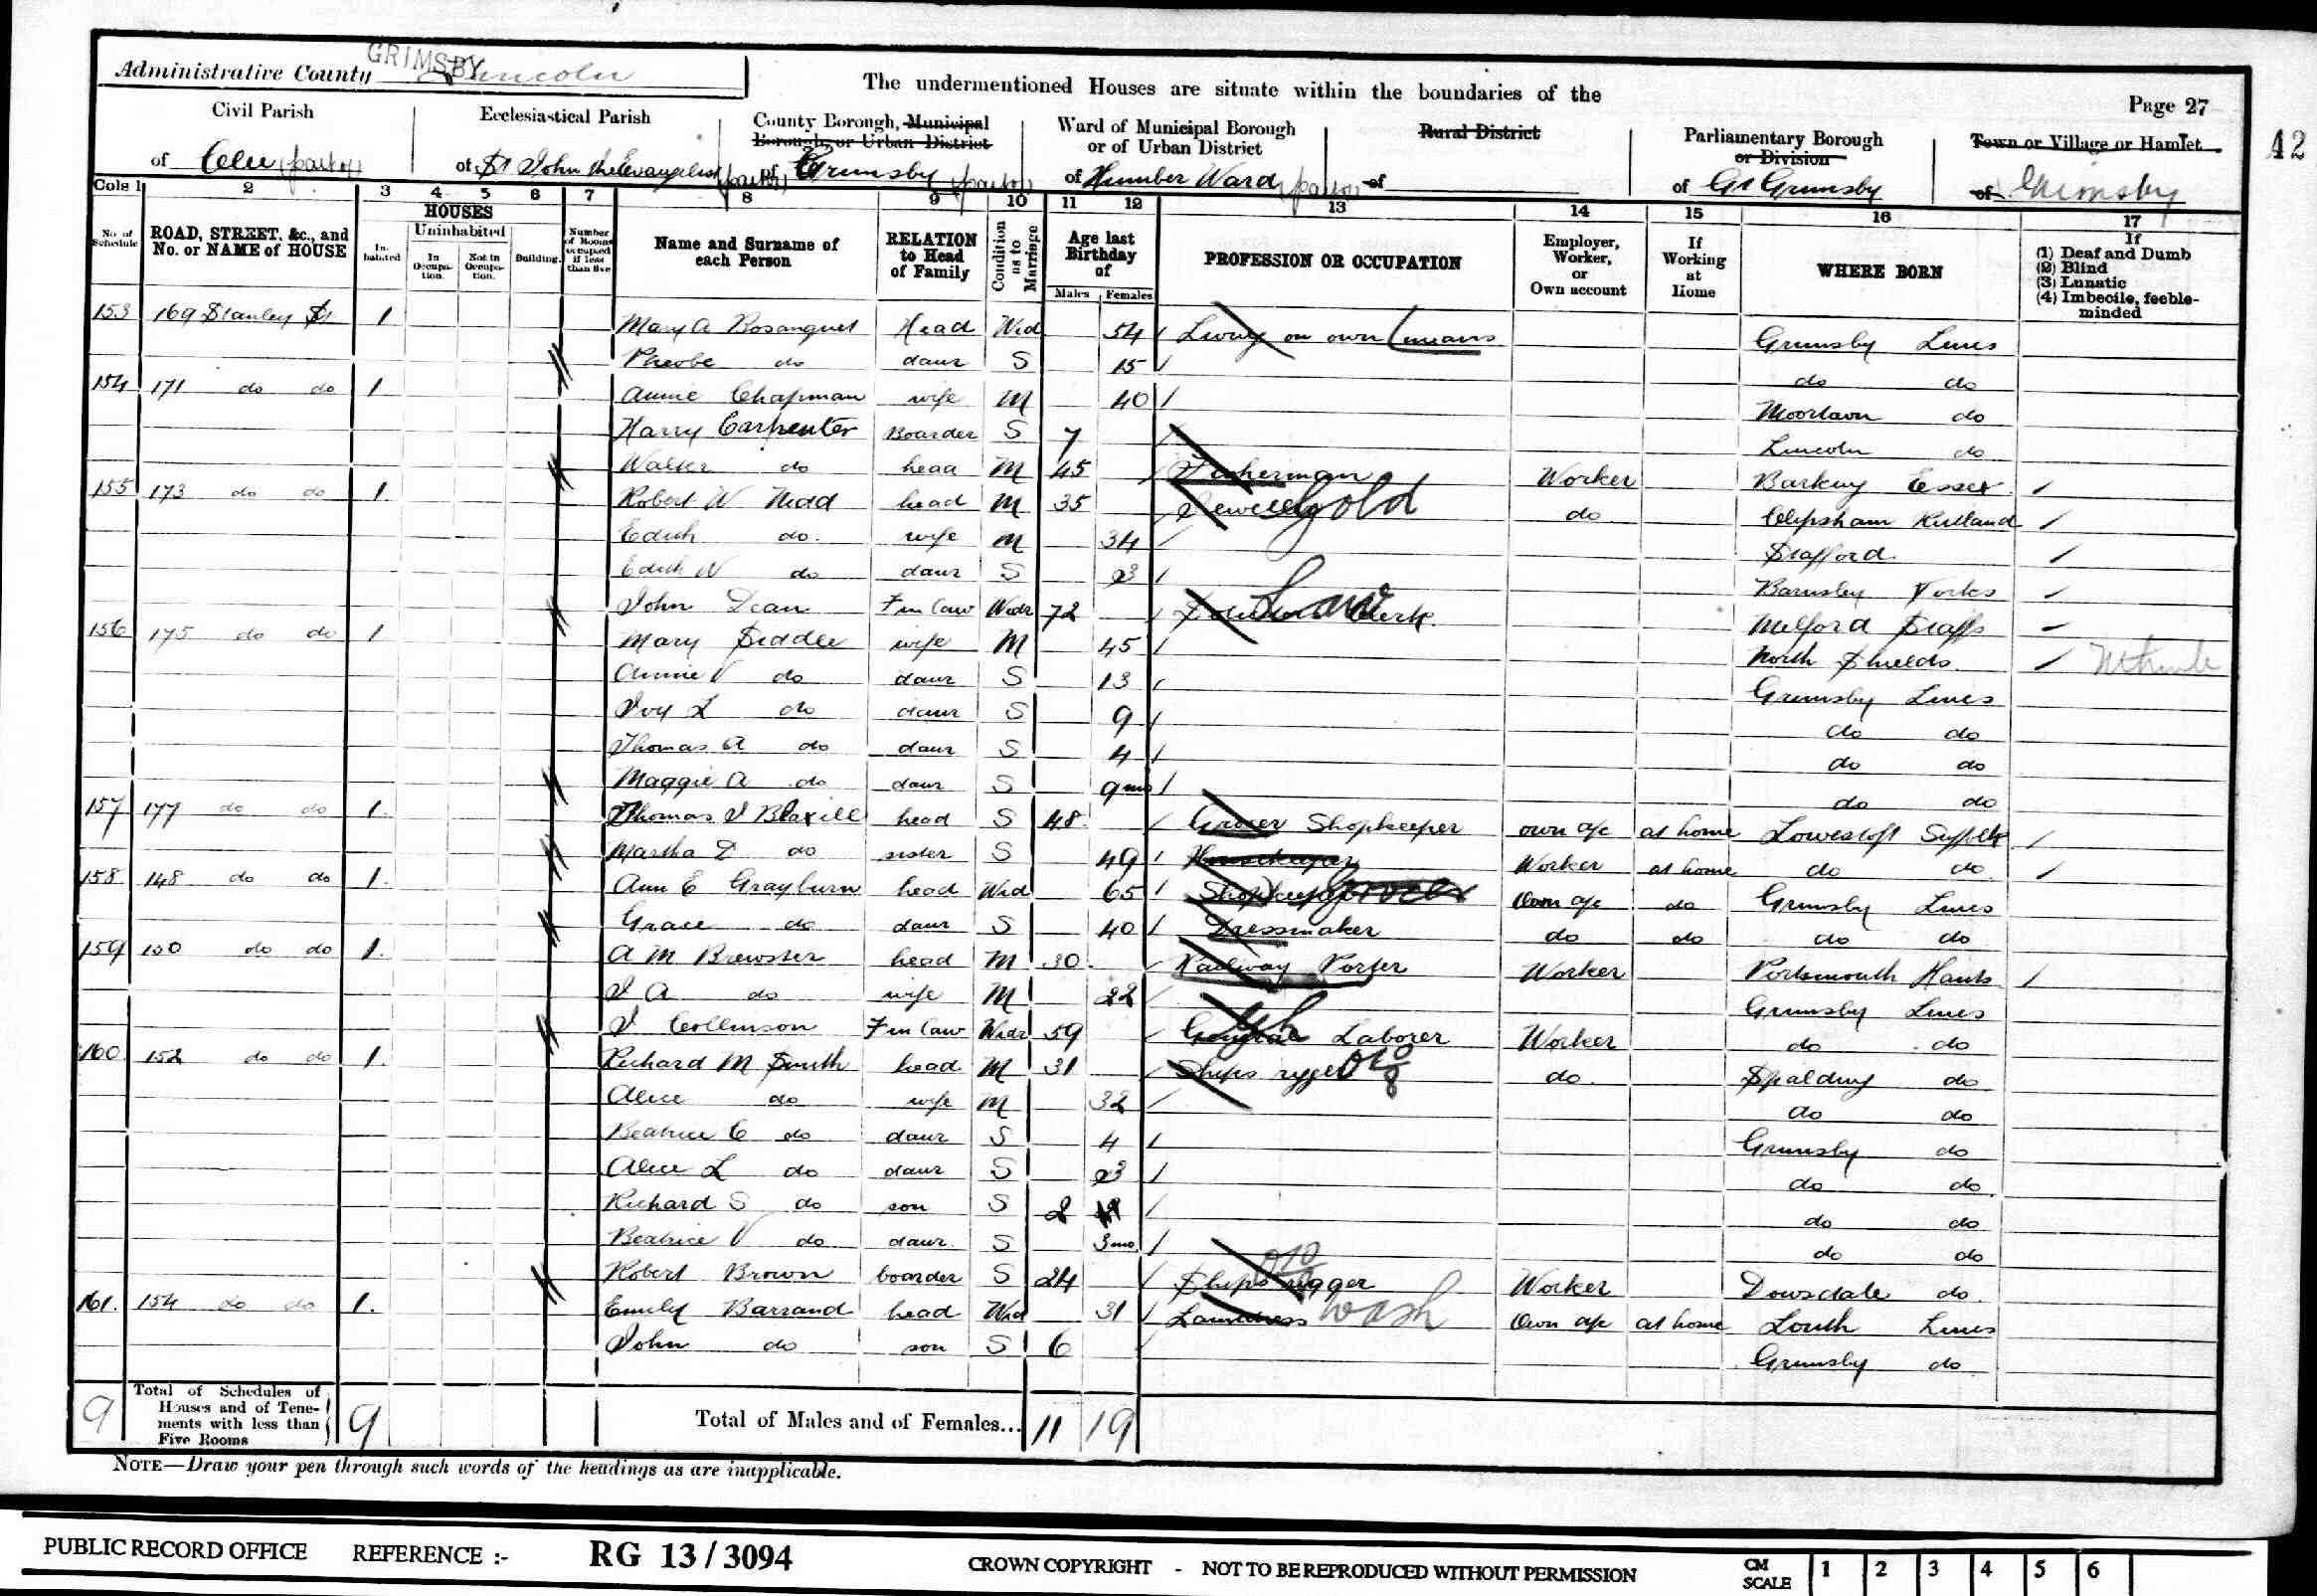 GRIMSBY
Administrative County Lincoln
The undermentioned Houses are situate within the boundaries of the
Page 27
42
Civil Parish
of Clee (part of)
Ecclesiastical Parish
of St John the Evangelist (part of)
County Borough, Municipal
Borough, or Urban District
of Grimsby (part of)
Ward of Municipal Borough
or of Urban District
of Humber Ward (part of)
Rural District
of
Parliamentary Borough
or Division
of Gt Grimsby
Town or Village or Hamlet
of Grimsby
Cols 1 2 3 4 5 6 7 8 9 10 11 12 13 14 15 16 17
No. of Schedule
ROAD, STREET, &c., and No. or NAME of HOUSE
HOUSES
In-habited
Uninhabited
In Occupa-tion.
Not in Occupa-tion.
Building.
Number of Rooms occupied if less than five
Name and Surname of each Person
RELATION to Head of Family
Condition as to Marriage
Age last Birthday of
Males Females
PROFESSION OR OCCUPATION
Employer, Worker, or Own account
If Working at Home
WHERE BORN
If
(1) Deaf and Dumb
(2) Blind
(3) Lunatic
(4) Imbecile, feeble-minded
153 169 Stanley St 1 Mary A Bosanquet Head Wid 54 Living on own means Grimsby Lincs
Pheobe do daur S 15 do do
154 171 do do 1 Annie Chapman wife M 40 do
Harry Carpenter Boarder S 7 Lincoln do
Walter do head M 45 Fisherman Worker Barking Essex
155 173 do do 1 Robert W Nidd head M 35 Jeweller Gold do Clipsham Rutland
Edith do wife M 34 Stafford
Edith N do daur S 3 Barnsley Yorks
John Dean F in law Widr 72 Law Clerk Milford Staffs
156 175 do do 1 Mary Siddle wife M 45 North Shields
Annie V do daur S 13 Grimsby Lincs
Ivy L do daur S 9 do do
Thomas A do daur S 4 do do
Maggie A do daur S 9mo do do
157 177 do do 1 Thomas J Blaxill head S 48 Grocer Shopkeeper own a/c at home Lowestoft Suffolk
Martha E do sister S 49 Housekeeper Worker at home do do
158 148 do do 1 Ann E Grayburn head Wid 65 Shopkeeper Grocer Own a/c do Grimsby Lincs
Grace do daur S 40 Dressmaker do do do do
159 150 do do 1 A M Brewster head M 30 Railway Porter Worker Portsmouth Hants
J A do wife M 22 Grimsby Lincs
J Collinson F in law Widr 59 General Laborer Worker do do
160 152 do do 1 Richard M Smith head M 31 Ships rigger do Spalding do
Alice do wife M 32 do do
Beatrice C do daur S 4 Grimsby do
Alice L do daur S 3 do do
Richard S do son S 2 do do
Beatrice V do daur S 3mo do do
Robert Brown boarder S 24 Ships rigger Worker Dowsdale do
161 154 do do 1 Emily Barrand head Wid 31 Laundress Wash Own a/c at home Louth Lincs
John do son S 6 Grimsby do
9 Total of Schedules of Houses and of Tene-ments with less than Five Rooms 9
Total of Males and of Females... 11 19
NOTE—Draw your pen through such words of the headings as are inapplicable.
PUBLIC RECORD OFFICE REFERENCE :- RG 13/3094 CROWN COPYRIGHT - NOT TO BE REPRODUCED WITHOUT PERMISSION CM SCALE 1 2 3 4 5 6